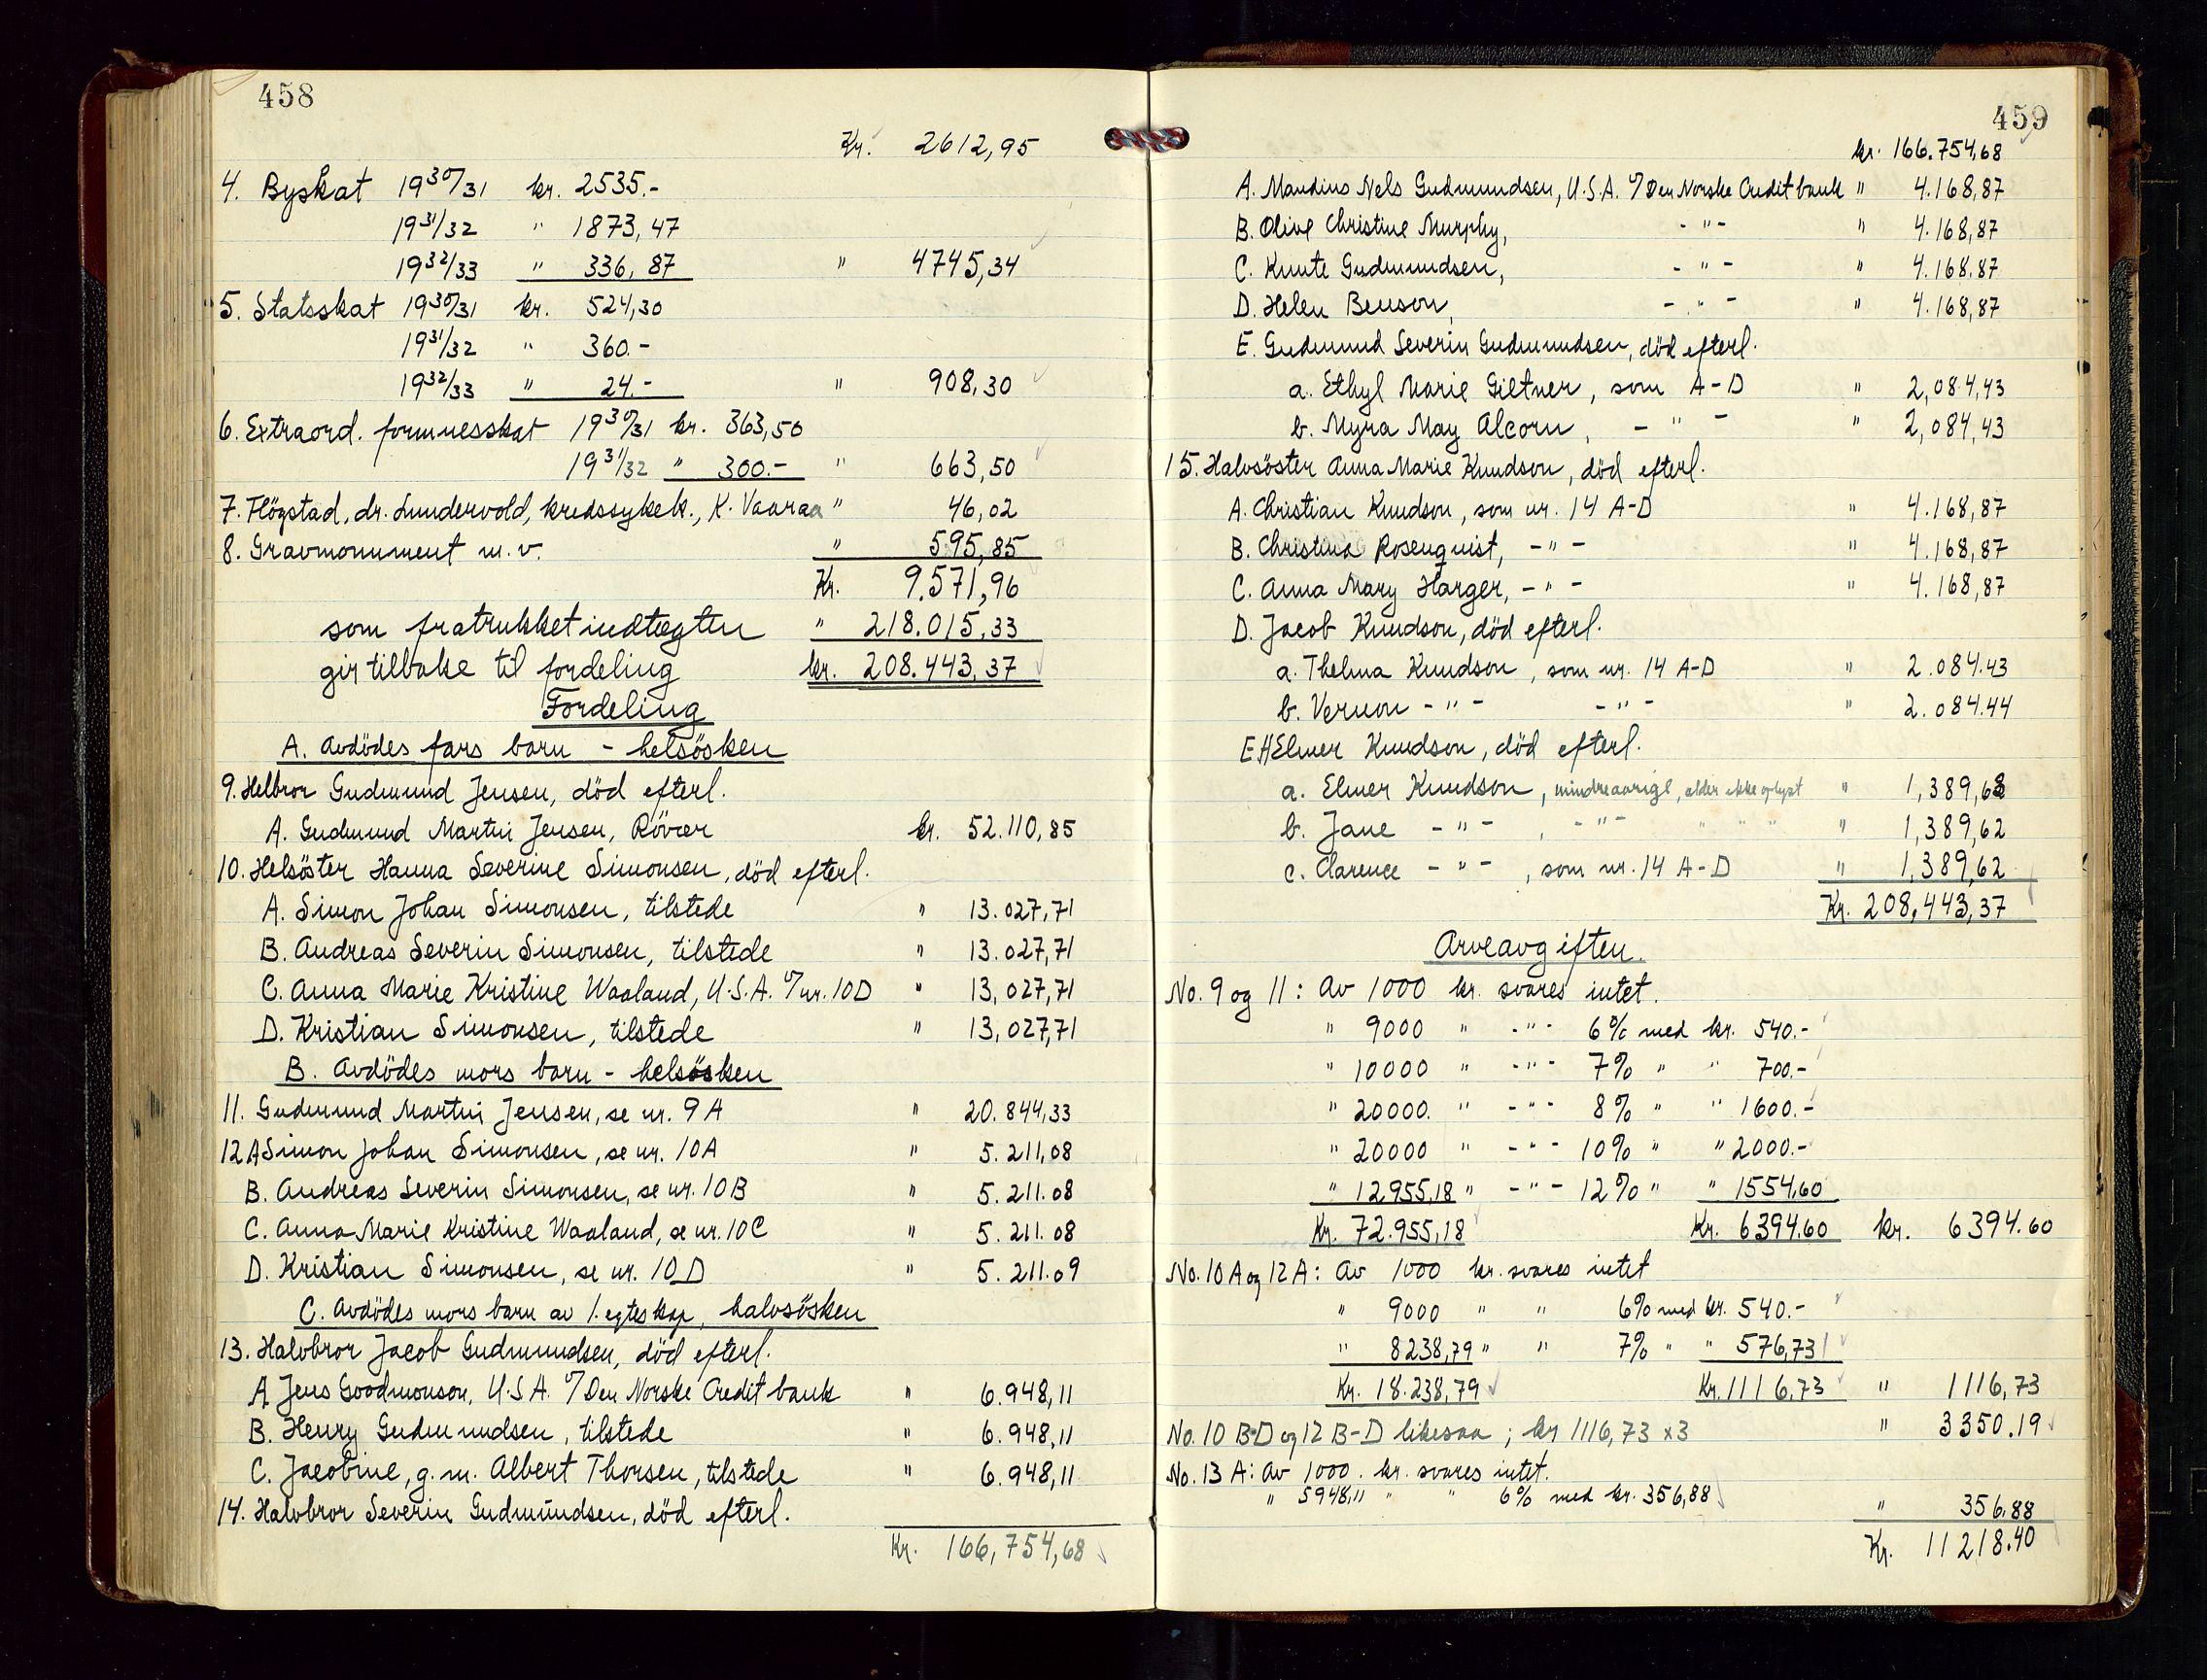 458
Kr. 2612,95
4. Byskat 1930/31 kr. 2535.-
1931/32 " 1873,47
1932/33 " 336,87 " 4745,34
5. Statsskat 1930/31 kr. 524,30
1931/32 " 360.-
1932/33 " 24.- " 908,30
6. Extraord. formuesskat 1930/31 kr. 363,50
1931/32 " 300.- " 663,50
7. Flögstad, dr. Lundervold, kredssykek., K. Vaaraa " 46,02
8. Gravmonument m.v. " 595,85
Kr. 9.571,96
som fratrukket indtægten " 218.015,33
gir tilbake til fordeling kr. 208.443,37
Fordeling
A. Avdödes fars barn - helsösken
9. Helbror Gudmund Jensen, död efterl.
A. Gudmund Martin Jensen, Rövær kr. 52.110,85
10. Helsöster Hanna Severine Simonsen, död efterl.
A. Simon Johan Simonsen, tilstede " 13.027,71
B. Andreas Severin Simonsen, tilstede " 13.027,71
C. Anna Marie Kristine Waaland, U.S.A. v/ nr. 10D " 13,027,71
D. Kristian Simonsen, tilstede " 13,027,71
B. Avdödes mors barn - helsösken
11. Gudmund Martin Jensen, se nr. 9 A " 20.844,33
12 A Simon Johan Simonsen, se nr. 10A " 5.211,08
B. Andreas Severin Simonsen, se nr. 10B " 5.211.08
C. Anna Marie Kristine Waaland, se nr. 10C " 5.211.08
D. Kristian Simonsen, se nr. 10D " 5.211.09
C. Avdödes mors barn av 1. egteskap, halvsösken
13. Halvbror Jacob Gudmundsen, död efterl.
A Jens Goodmonson, U.S.A. v/ Den Norske Creditbank " 6.948,11
B. Henry Gudmundsen, tilstede " 6.948,11
C. Jacobine, g.m. Albert Thorsen, tilstede " 6.948,11
14. Halvbror Severin Gudmundsen, död efterl.
Kr. 166,754,68
459
kr. 166.754,68
A. Maudius Nels Gudmundsen, U.S.A. v/ Den Norske Creditbank " 4.168,87
B. Olive Christine Murphy, - " - " 4.168,87
C. Knute Gudmundsen, - " - " 4.168,87
D. Helen Benson, - " - " 4.168,87
E. Gudmund Severin Gudmundsen, död efterl.
a. Ethyl Marie Giltner, som A-D " 2,084,43
b. Myra May Alcorn, - " - " 2,084,43
15. Halvsöster Anna Marie Knudson, död efterl.
A. Christian Knudson, som nr. 14 A-D " 4.168,87
B. Christina Rosenquist, - " - " 4.168,87
C. Anna Mary Harger, - " - " 4.168,87
D. Jacob Knudson, död efterl.
a. Thelma Knudson, som nr. 14 A-D " 2.084.43
b. Vernon - " - - " - " 2.084.44
E. Elmer Knudson, död efterl.
a. Elmer Knudson, mindreaarige, alder ikke oplyst " 1,389,63
b. Jane - " - , - " - " " " " 1,389,62
c. Clarence - " - , som nr. 14 A-D " 1,389,62
Kr. 208,443,37
Arveavgiften.
No. 9 og 11: Av 1000 kr. svares intet.
" 9000 " - " - 6% med kr. 540.-
" 10000 " - " - 7% " " 700.-
" 20000. " - " - 8% " " 1600.-
" 20000 " - " - 10% " " 2000.-
" 12955,18 " - " - 12% " " 1554,60
Kr. 72.955,18 Kr. 6394.60 kr. 6394.60
No. 10 A og 12 A: Av 1000 kr. svares intet
" 9000 " " 6% med kr. 540.-
" 8238,79 " " 7% " " 576,73
Kr. 18.238,79 Kr. 1116,73 " 1116,73
No. 10 B-D og 12 B-D likesaa; kr 1116,73 x 3 " 3350.19
No. 13 A: Av 1000. kr. svares intet.
" 5948,11 " " 6% med kr. 356,88 " 356,88
Kr. 11218.40